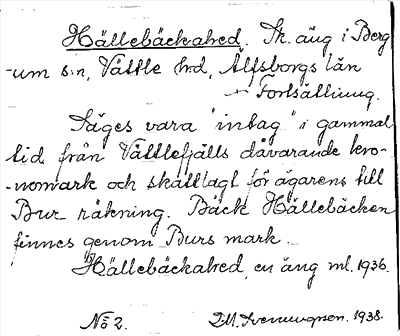 Hällebäckahed. Sk. äng i Berg
-um s:n, Vättle hd, Älfsborgs län
Fortsättning.
Säges vara "intag" i gammal
tid från Vättlefjälls dåvarande kro-
-nomark och skattlagt för ägarens till
Bur räkning. Bäck Hällebäcken
finnes genom Burs mark.
Hällebäckahed, en äng ml. 1936.
No 2. 1938.